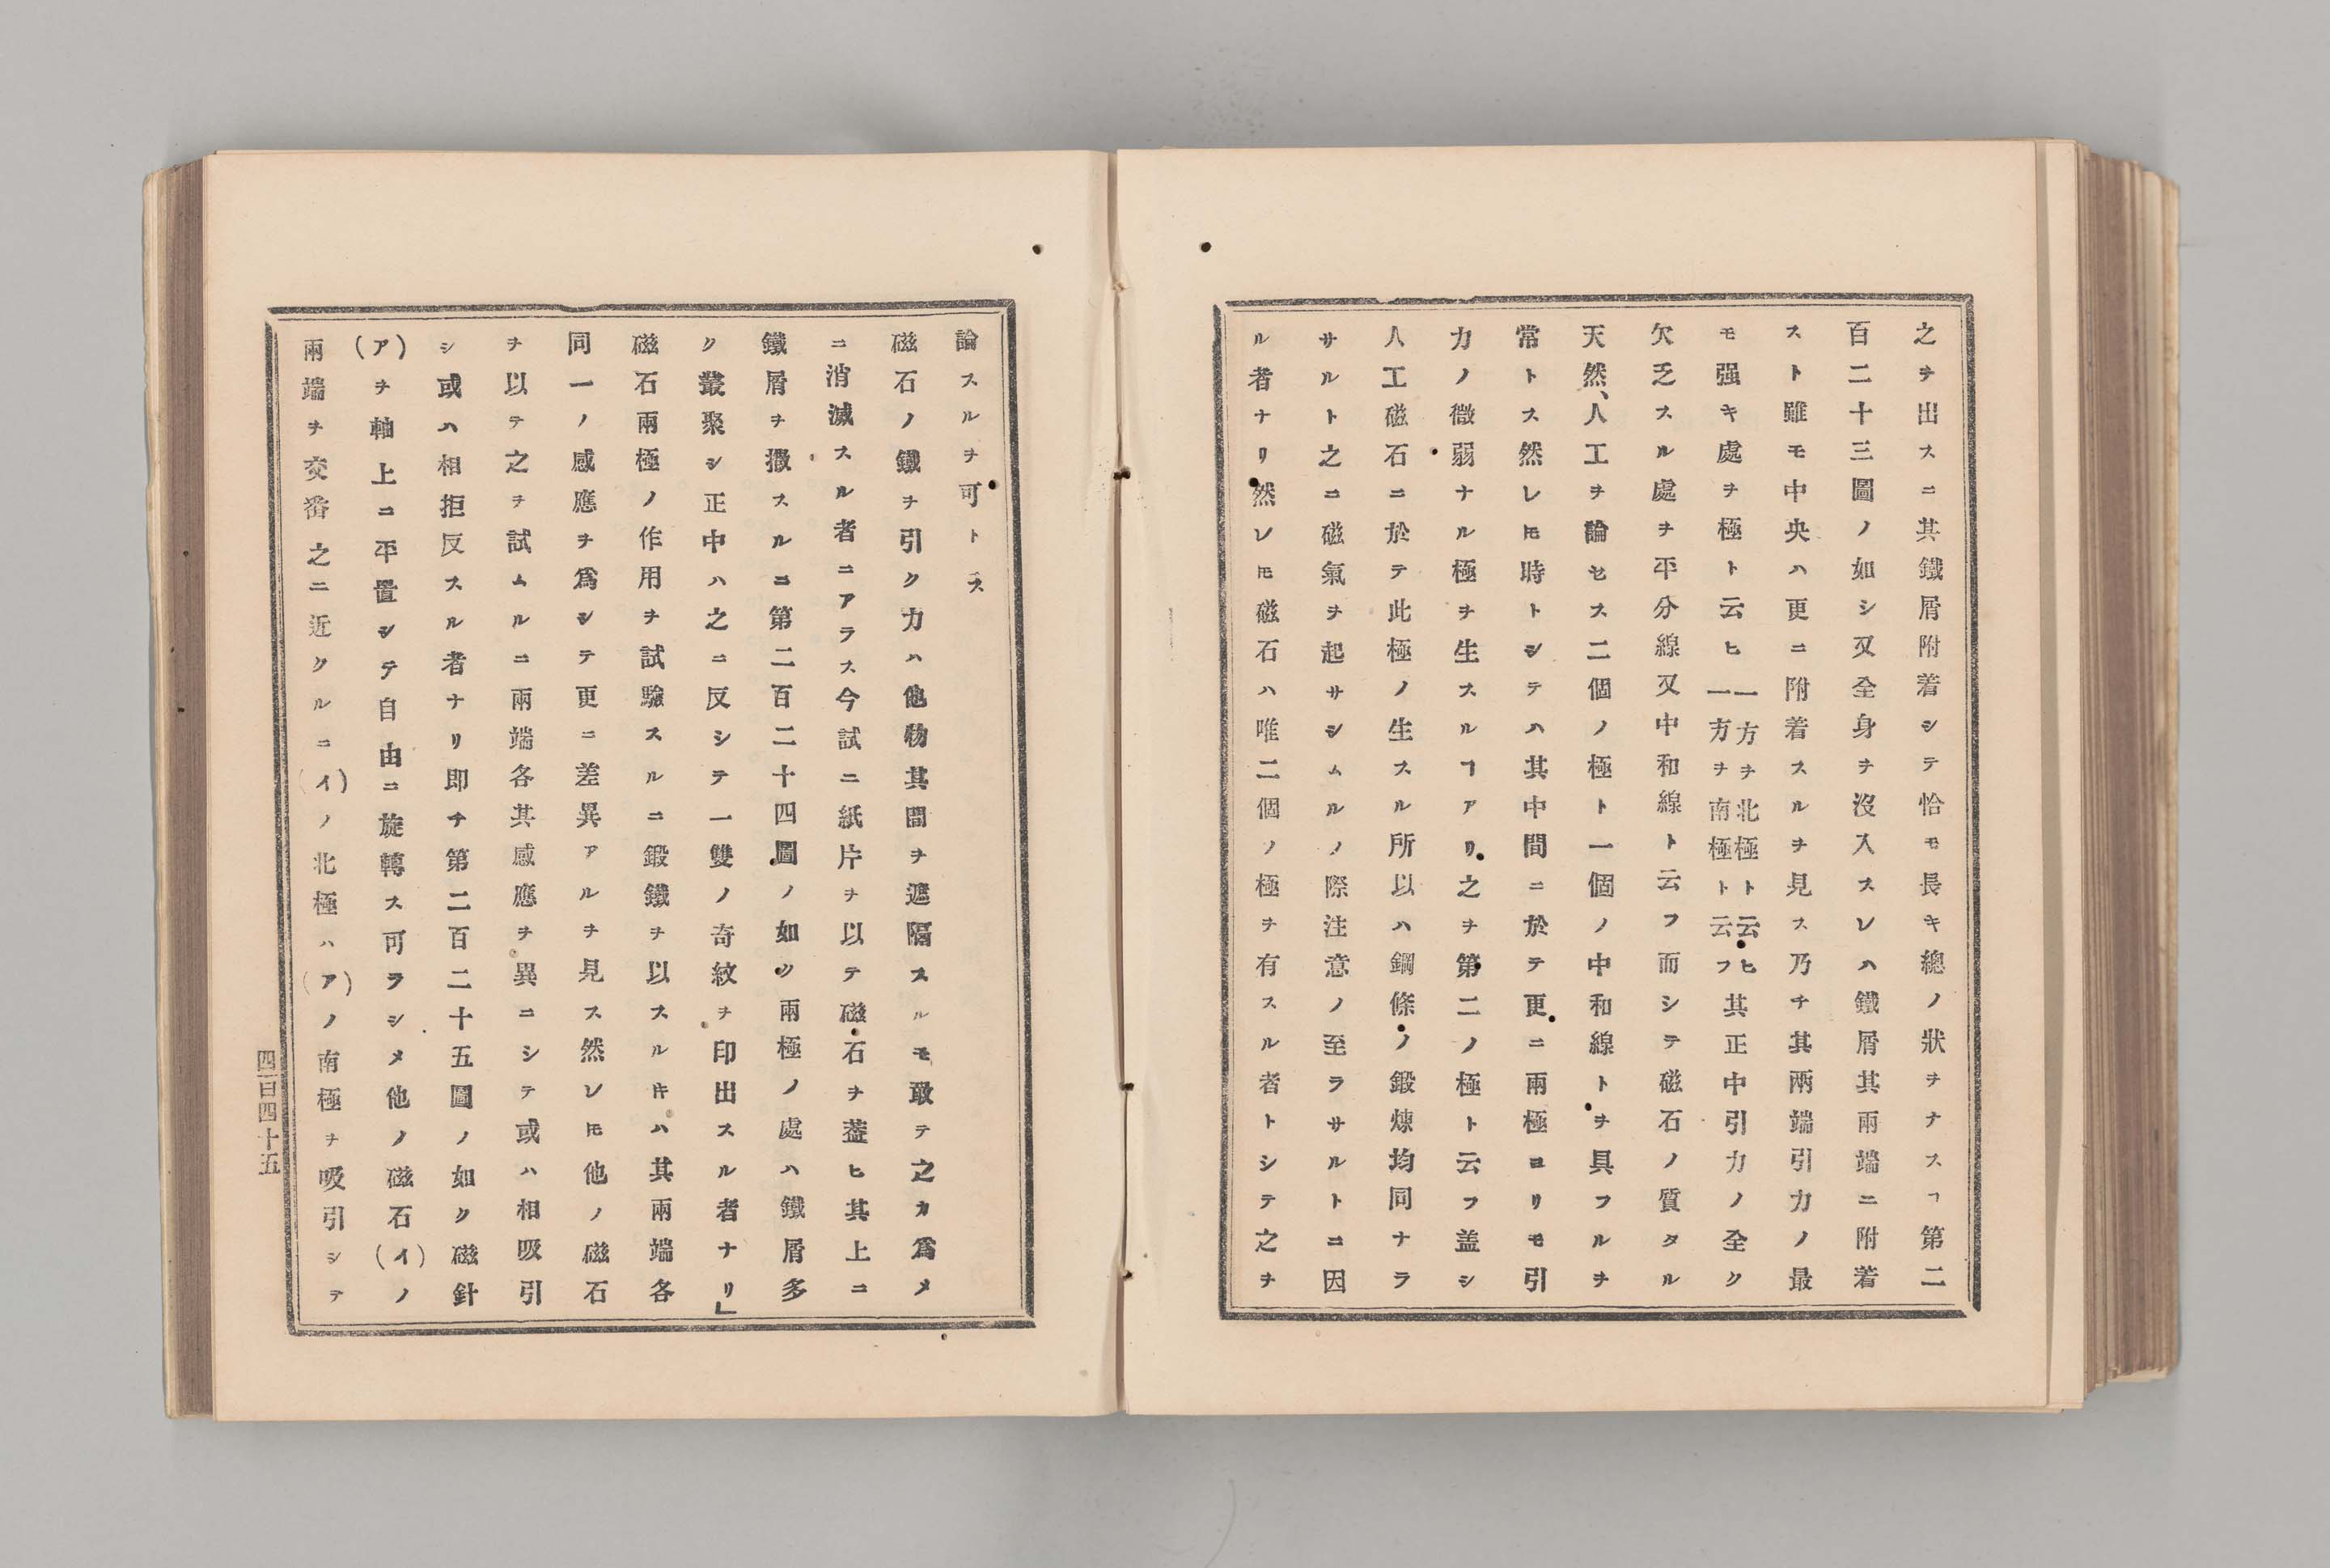 之ヲ出スニ其鐵屑附着シテ恰モ長キ總ノ狀ヲナスヿ第二
百二十三圖ノ如シ又全身ヲ沒入スレハ鐵屑其兩端ニ附着
スト雖モ中央ハ更ニ附着スルヲ見ス乃チ其兩端引力ノ最
モ强キ處ヲ極ト云ヒ一方ヲ北極ト云ヒ一方ヲ南極ト云フ其正中引力ノ全ク
欠乏スル處ヲ平分線又中和線ト云フ而シテ磁石ノ質タル
天然、人工ヲ論セス二個ノ極ト一個ノ中和線トヲ具フルヲ
常トス然レ𪜈時トシテハ其中間ニ於テ更ニ兩極ヨリモ引
力ノ微弱ナル極ヲ生スルヿアリ之ヲ第二ノ極ト云フ盖シ
人工磁石ニ於テ此極ノ生スル所以ハ鋼條ノ鍛煉均同ナラ
サルト之ニ磁氣ヲ起サシムルノ際注意ノ至ラサルトニ因
ル者ナリ然レ𪜈磁石ハ唯二個ノ極ヲ有スル者トシテ之ヲ
論スルヲ可トス
磁石ノ鐵ヲ引ク力ハ他物其間ヲ遮隔スルモ敢テ之カ爲メ
ニ消滅スル者ニアラス今試ニ紙片ヲ以テ磁石ヲ葢ヒ其上ニ
鐵屑ヲ撒スルニ第二百二十四圖ノ如ク兩極ノ處ハ鐵屑多
ク叢聚シ正中ハ之ニ反シテ一雙ノ奇紋ヲ印出スル者ナリ」
磁石兩極ノ作用ヲ試驗スルニ鍛鐵ヲ以スルキハ其兩端各
同一ノ感應ヲ爲シテ更ニ差異アルヲ見ス然レ𪜈他ノ磁石
ヲ以テ之ヲ試ムルニ兩端各其感應ヲ異ニシテ或ハ相吸引
シ或ハ相拒反スル者ナリ即チ第二百二十五圖ノ如ク磁針
(ア)ヲ軸上ニ平置シテ自由ニ旋轉ス可ラシメ他ノ磁石(イ)ノ
兩端ヲ交番之ニ近クルニ(イ)ノ北極ハ(ア)ノ南極ヲ吸引シテ
四百四十五